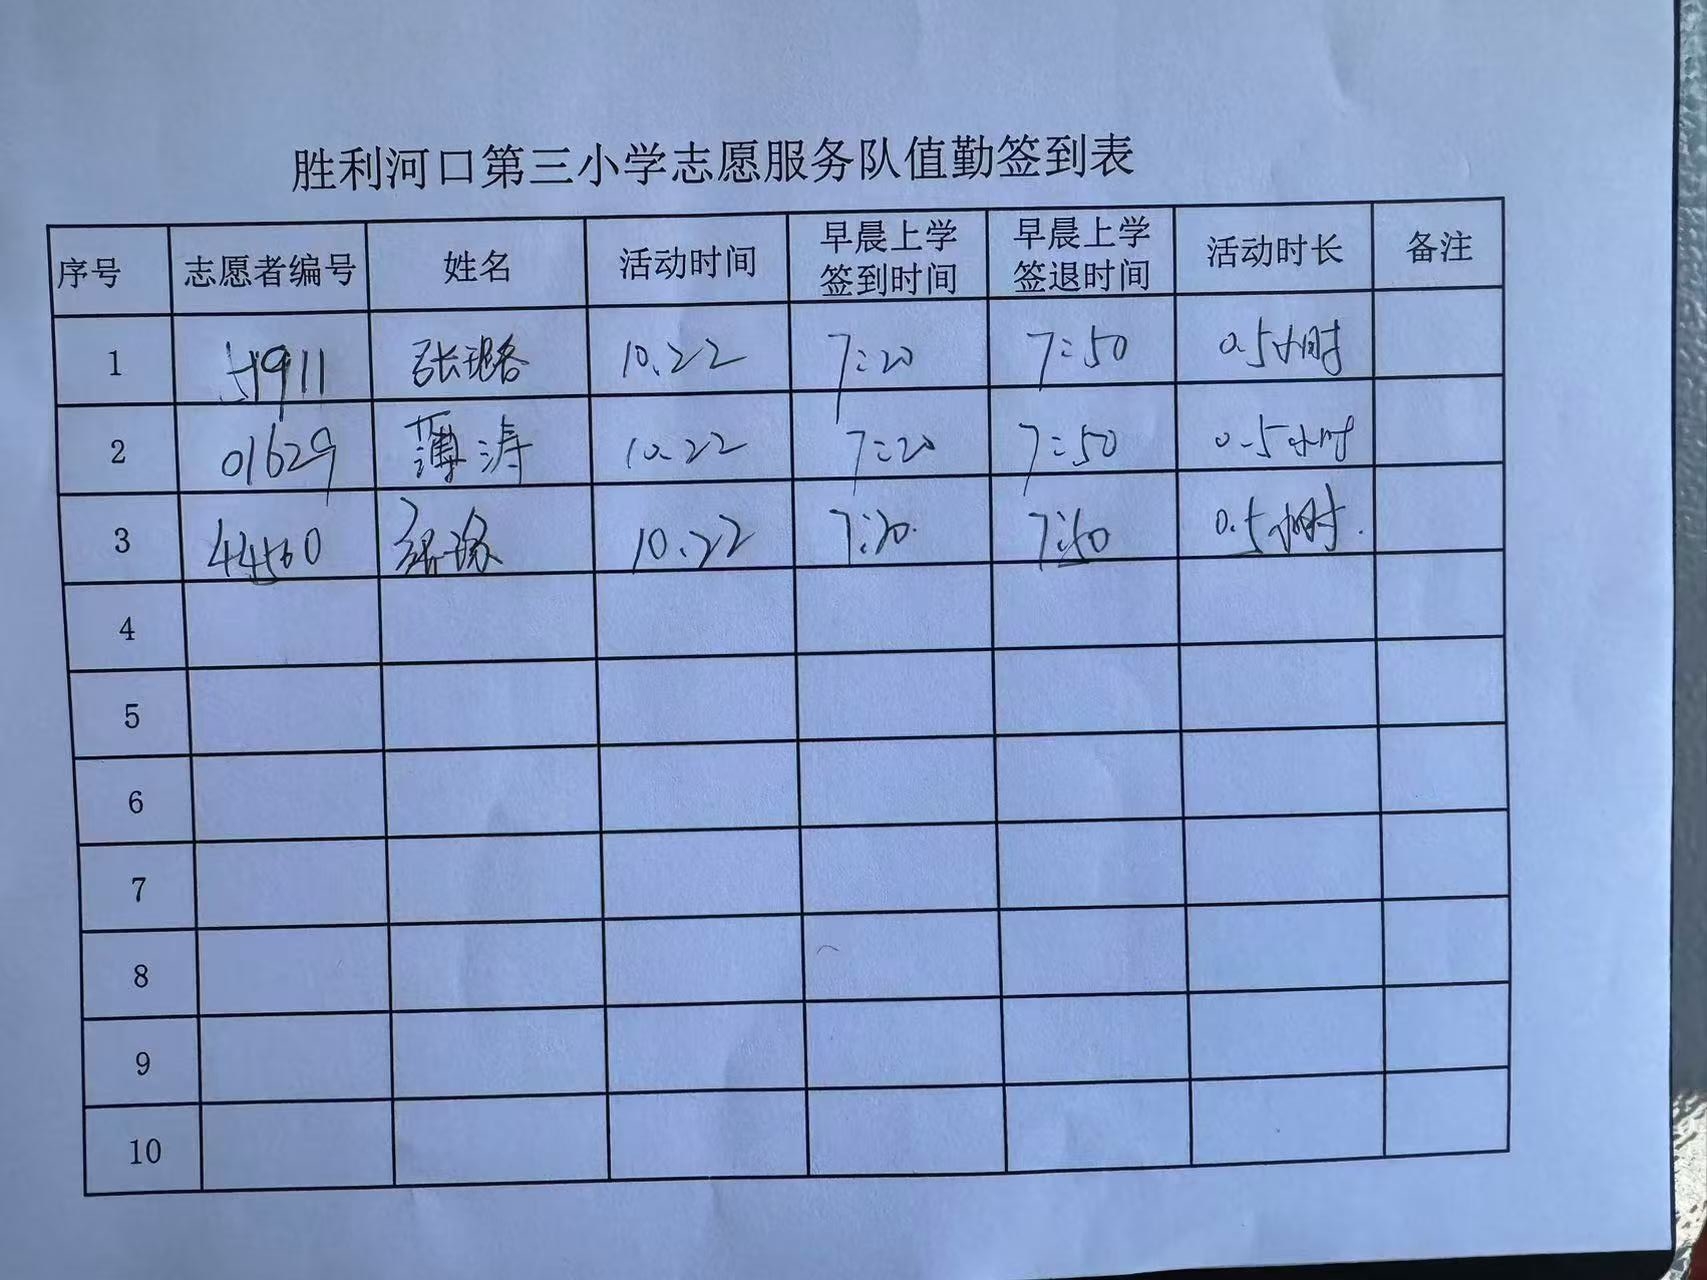 胜利河口第三小学志愿服务队值勤签到表
序号 志愿者编号 姓名 活动时间 早晨上学签到时间 早晨上学签退时间 活动时长 备注
1 51911 张璐 10.22 7:20 7:50 0.5小时
2 01629 薄涛 10.22 7:20 7:50 0.5小时
3 44560 10.22 7:20 7:50 0.5小时.
4
5
6
7
8
9
10